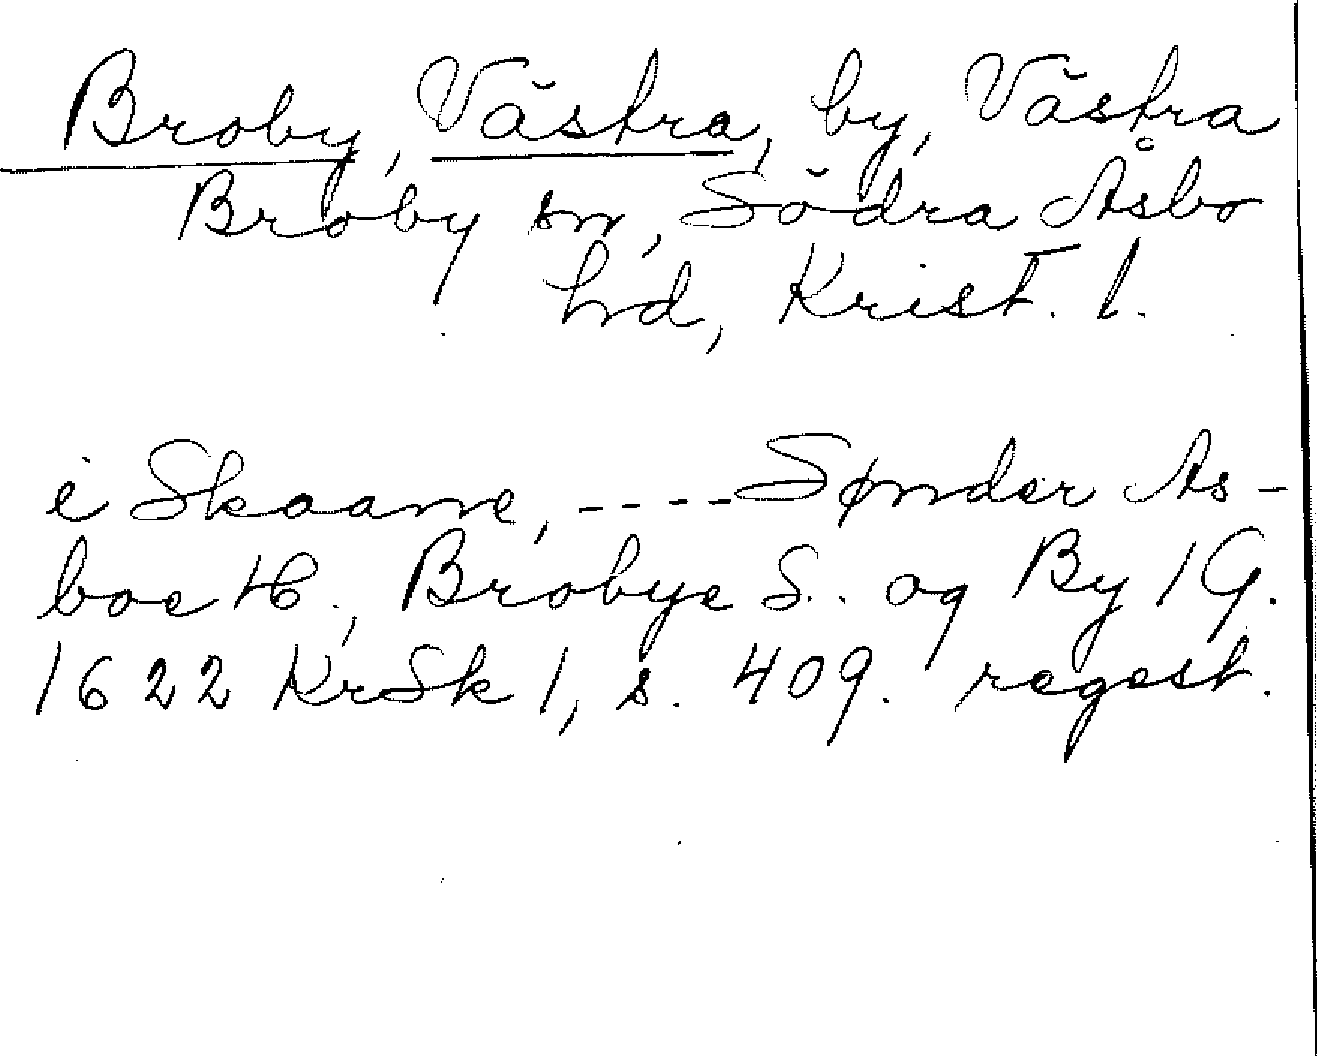 Broby, Västra, by, Västra
Broby sn, Södra Åsbo
hd, Krist. l.
i Skaane, ---- Sønder As-
boe H., Brobye S. og By 1 G.
1622 KrSk 1, s. 409. regest.